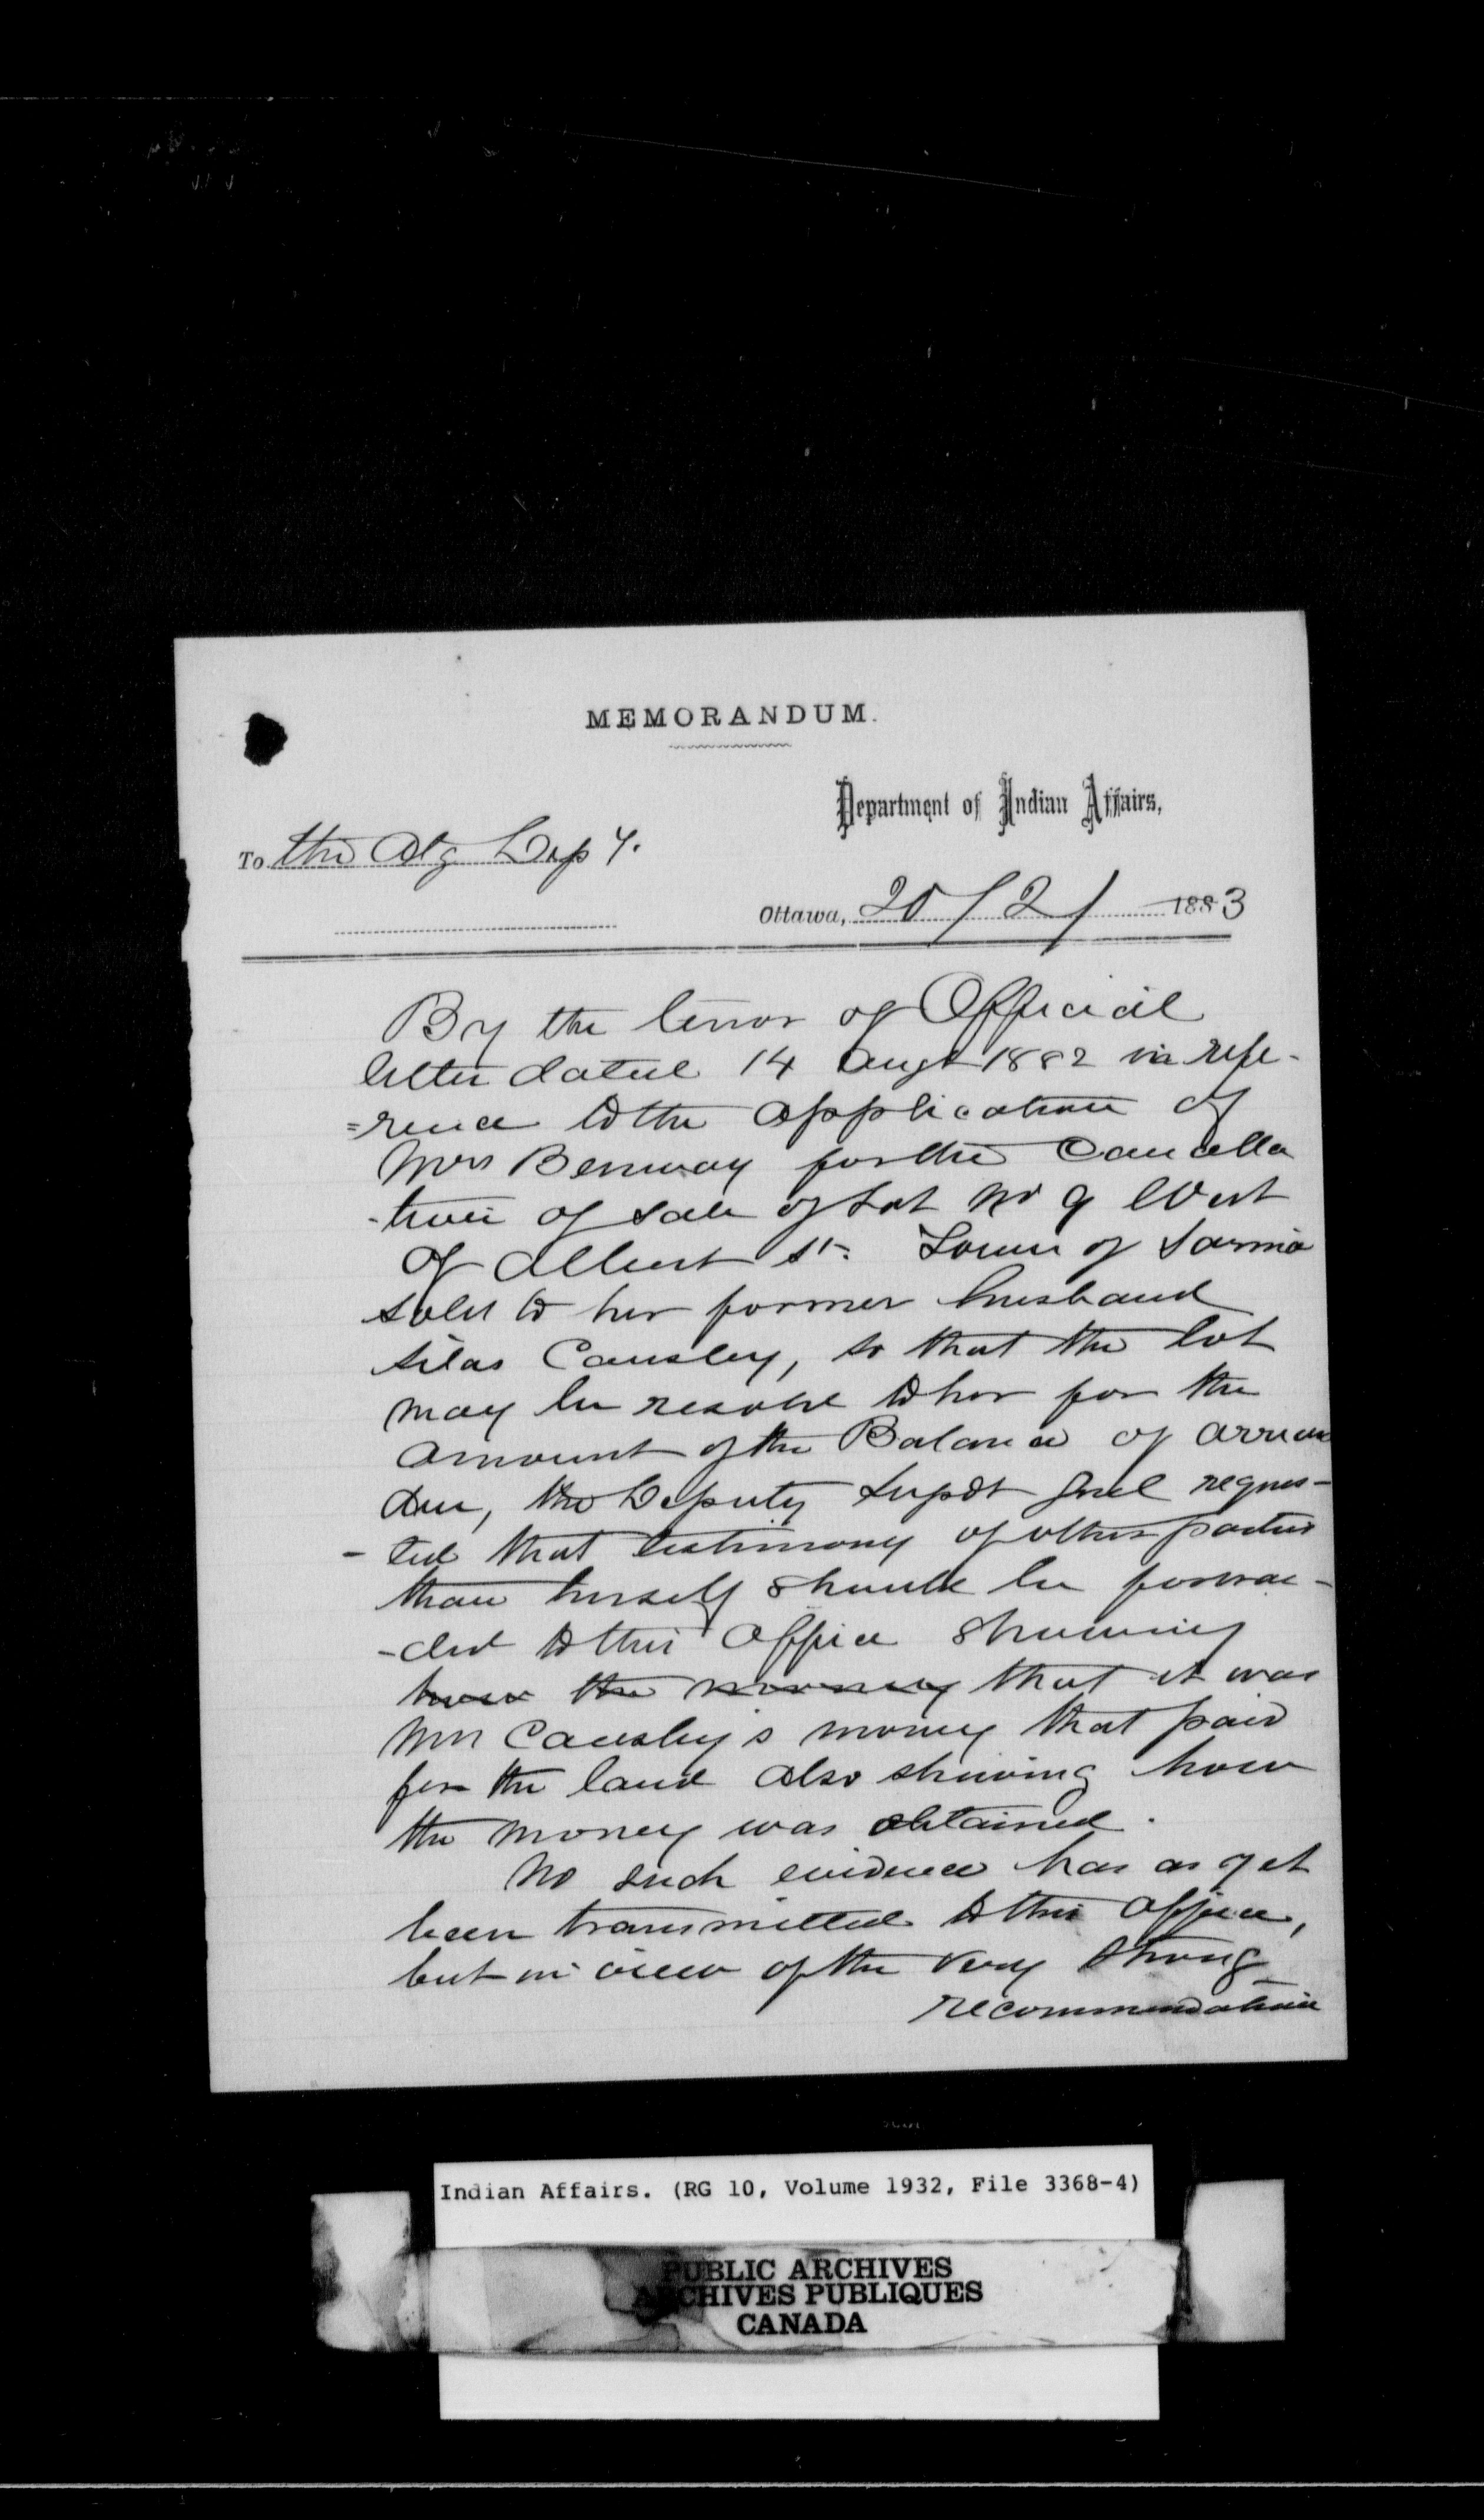 MEMORANDUM.
Department of Indian Affairs,
To the Actg Depy.
Ottawa, 20/2/ 1883
By the tenor of Official
letter dated 14 Augt 1882 in refe-
=rence to the application of
Mrs Benway for the Cancella
-tion of sale of Lot No 9 West
of Albert St. Town of Sarnia
sold to her former husband
Silas Causley, so that the lot
may be resold to her for the
amount of the Balance of arrears
due, the Deputy Supdt Genl reques-
-ted that testimony of other parties
than herself should be forwar-
-ded to this Office shewing
how the money that it was
Mrs Causley's money that paid
for the land also shewing how
the money was obtained.
No such evidence has as yet
been transmitted to this Office,
but in view of the very strong
recommendation
Indian Affairs. (RG 10, Volume 1932, File 3368-4)
PUBLIC ARCHIVES
ARCHIVES PUBLIQUES
CANADA